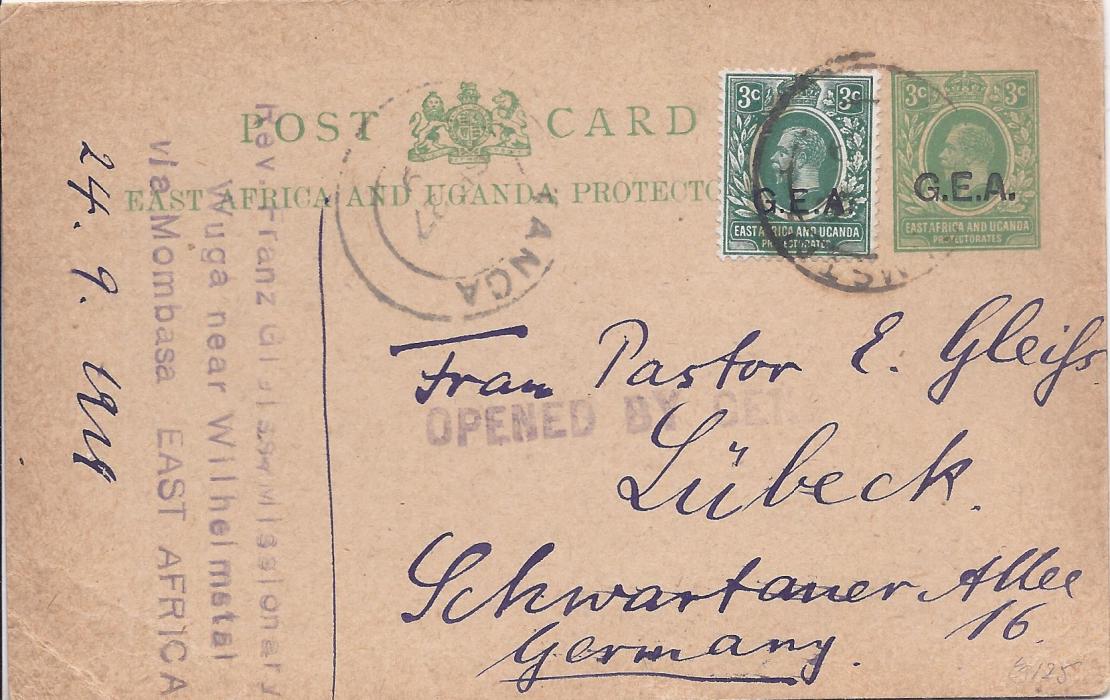 POST CARD
EAST AFRICA AND UGANDA
3c 3c
G.E.A.
EAST AFRICA AND UGANDA
PROTECTORATES
3c 3c
G.E.A.
EAST AFRICA AND UGANDA
PROTECTORATES
TANGA
Frau Pastor E. Gleiss
OPENED BY
Lübeck.
Schwartauer Allee
16.
Germany.
Rev. Franz Missionary
Wuga near Wilhelmstal
via Mombasa EAST AFRICA
24. 9.